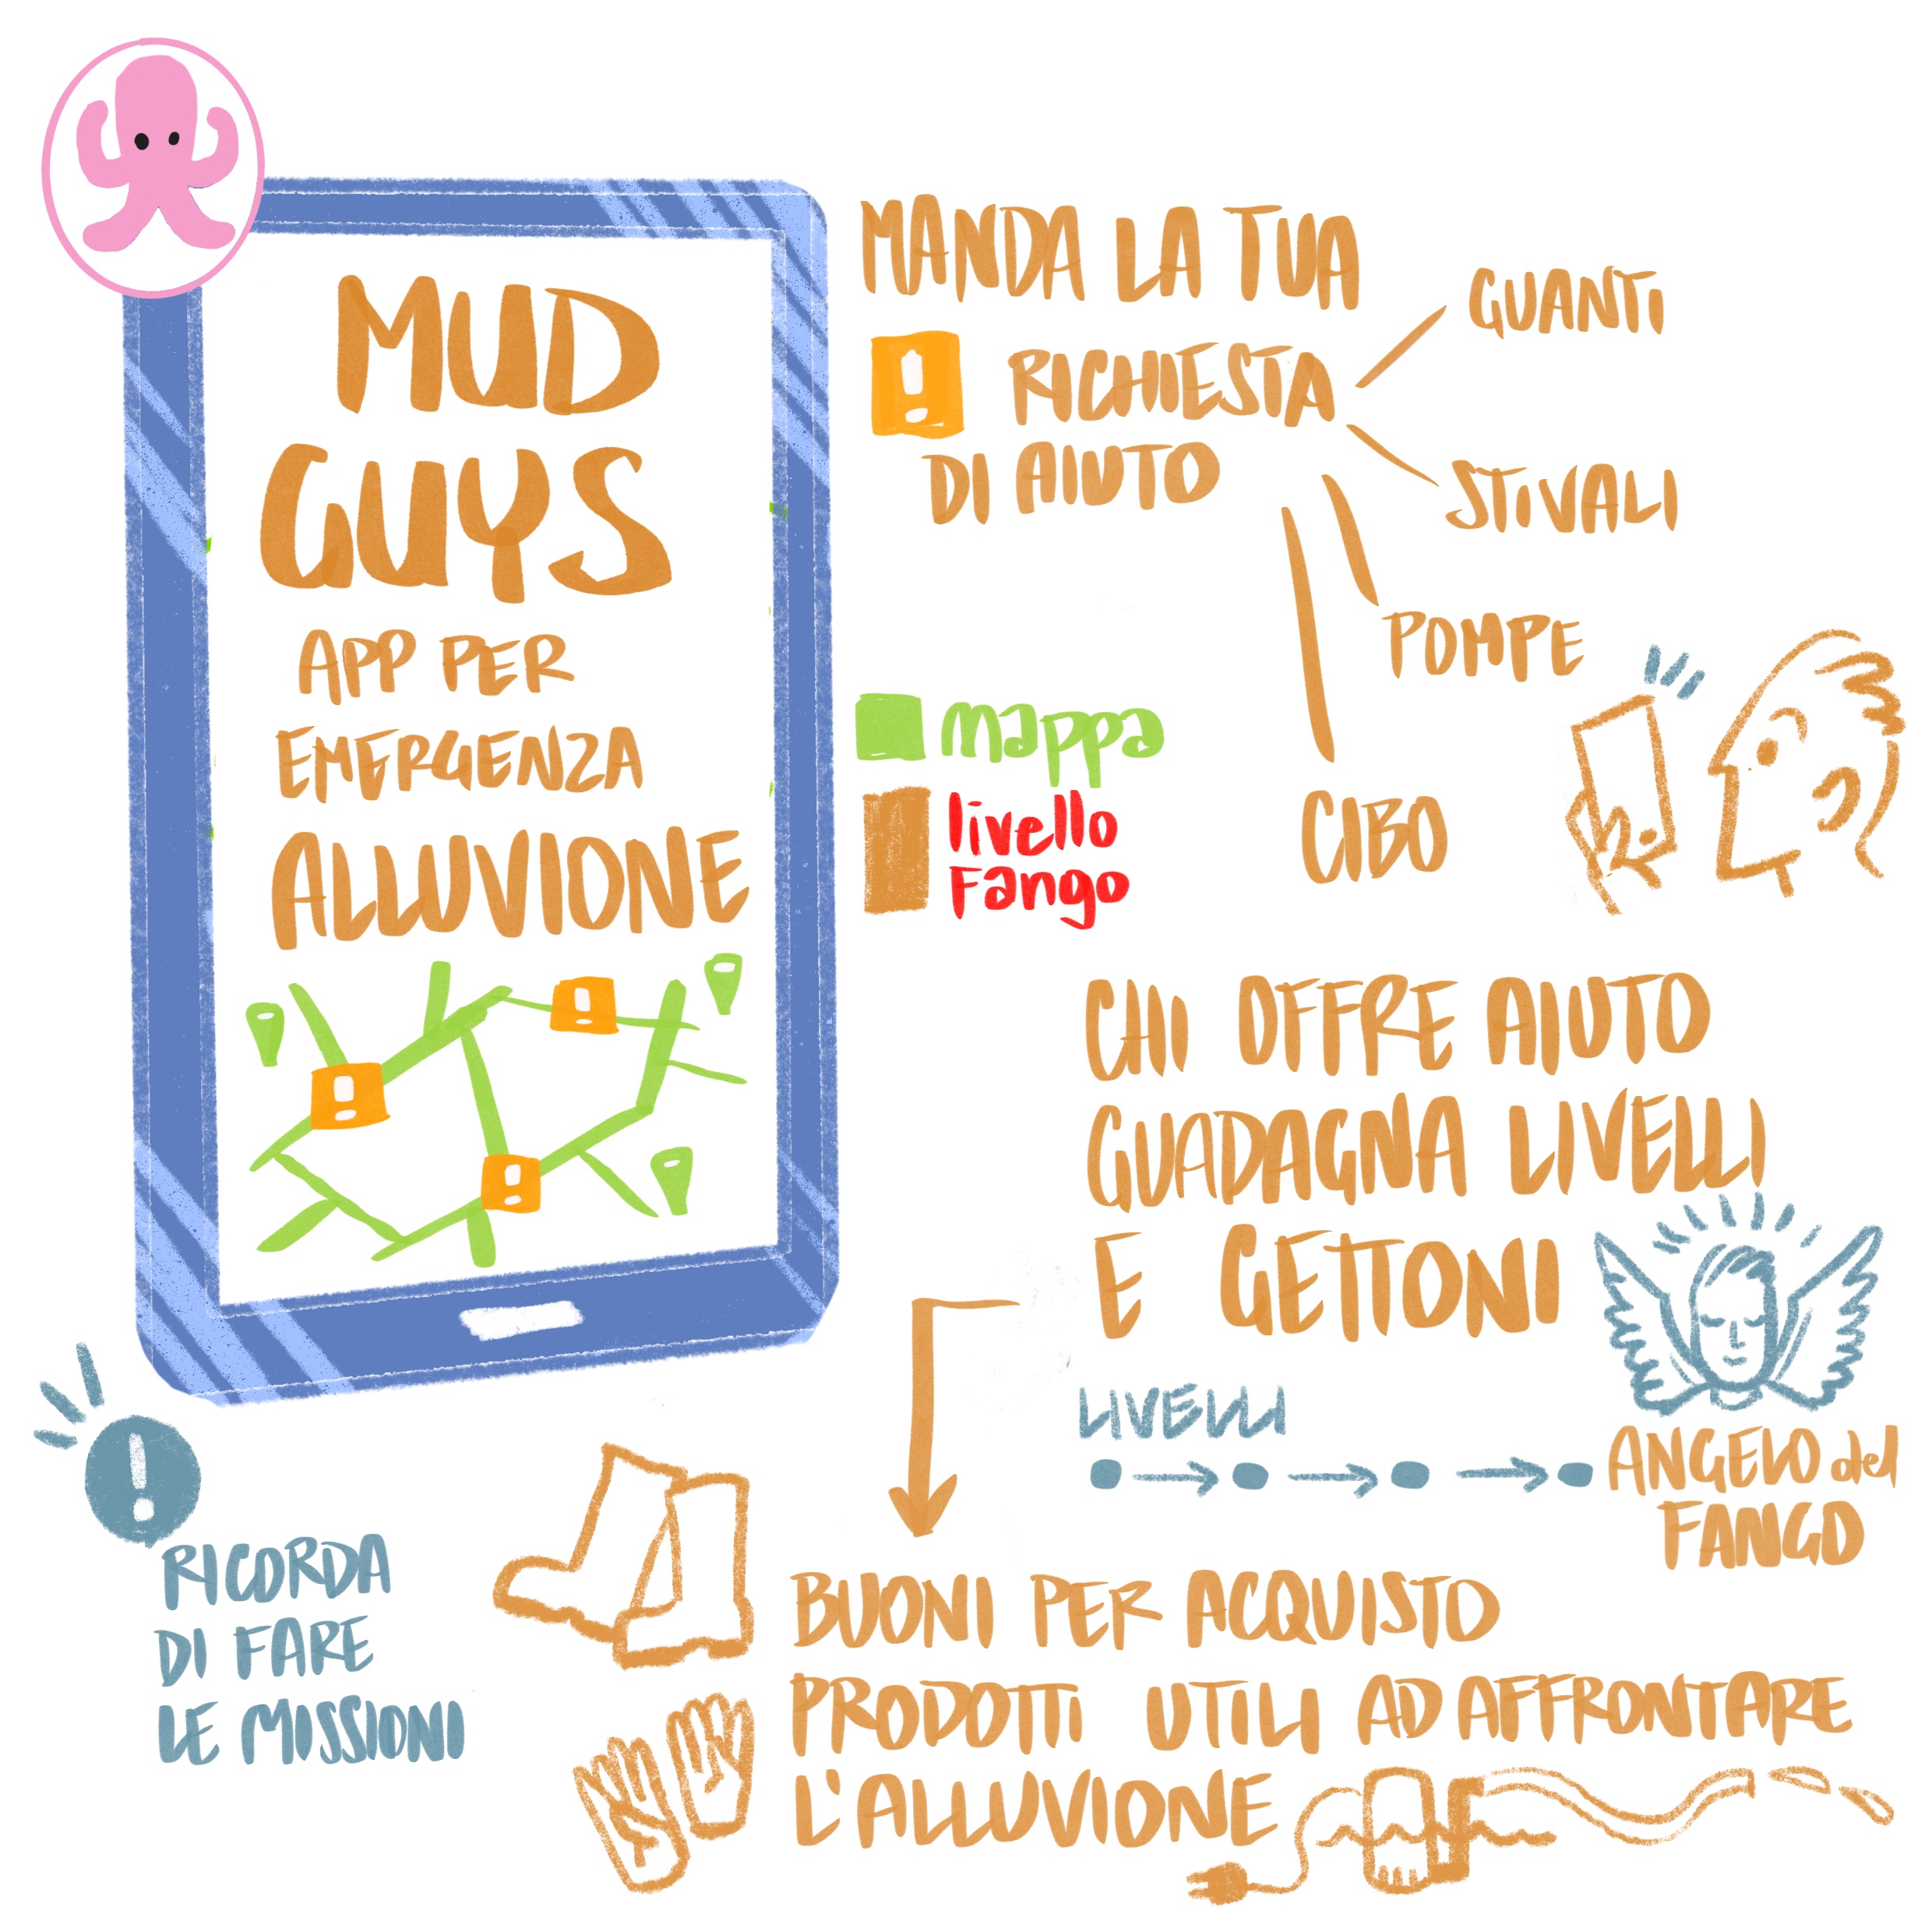 MUD
GUYS
APP PER
EMERGENZA
ALLUVIONE
!
!
!
MANDA LA TUA
! RICHIESTA
DI AIUTO
GUANTI
STIVALI
POMPE
CIBO
mappa
livello
Fango
CHI OFFRE AIUTO
GUADAGNA LIVELLI
E GETTONI
LIVELLI
ANGELO del
FANGO
!
RICORDA
DI FARE
LE MISSIONI
BUONI PER ACQUISTO
PRODOTTI UTILI AD AFFRONTARE
L'ALLUVIONE